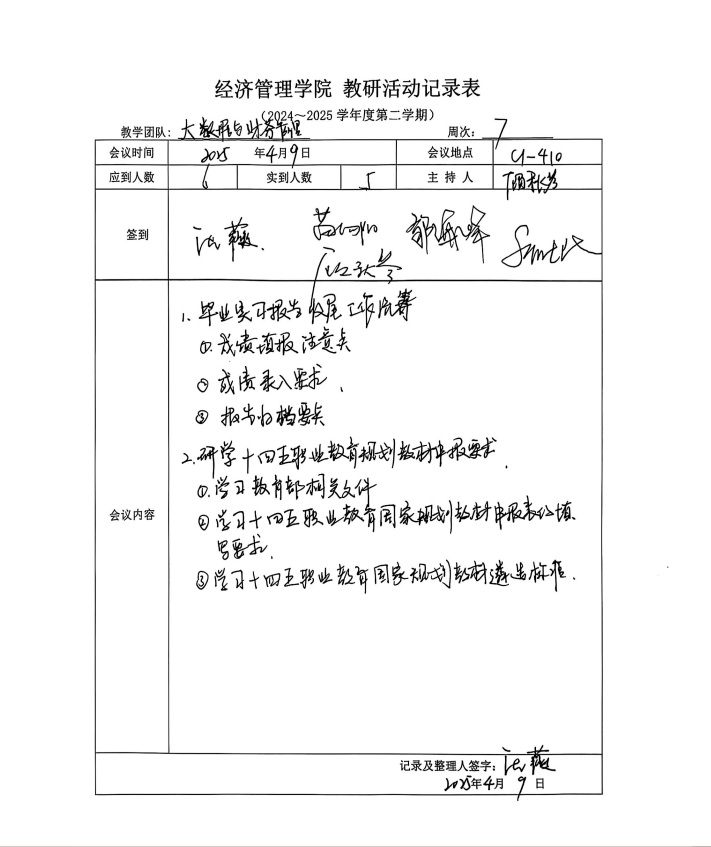 经济管理学院 教研活动记录表
（2024～2025 学年度第二学期）
教学团队：大数据与财务管理 周次：7
会议时间 2025 年4月9日 会议地点 G-410
应到人数 6 实到人数 5 主 持 人
签到
1. 毕业实习报告 工作
①.成绩填报注意点
② 成绩录入要求.
③ 报告归档要点
2.研学十四五职业教育规划教材申报要求.
①.学习教育部相关文件
② 学习十四五职业教育国家规划教材申报表的填
写要求.
③ 学习十四五职业教育国家规划教材遴选标准.
会议内容
记录及整理人签字：
2025年4月9日